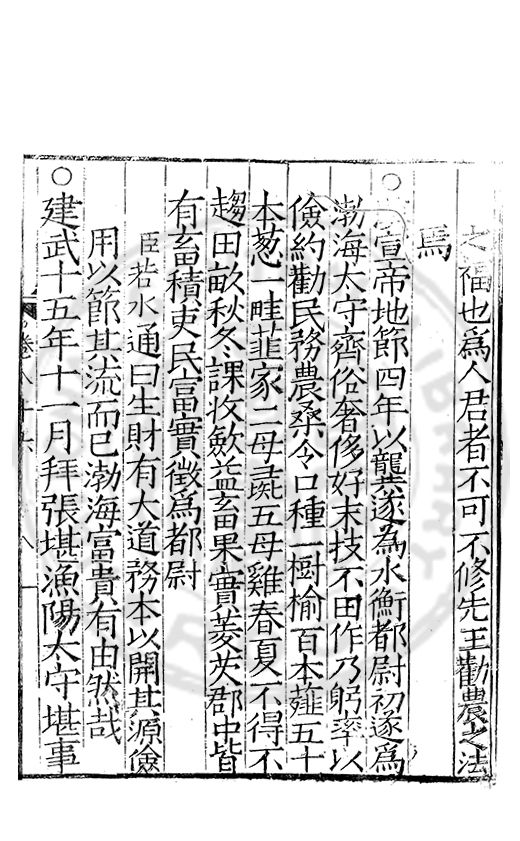 之福也爲人君者不可不修先王勸農之法
焉
○宣帝地節四年以龔遂爲水衡都尉初遂爲
渤海太守齊俗奢侈好末技不田作乃躬率以
儉約勸民務農桑令口種一樹榆百本薤五十
本葱一畦韮家二母彘五母雞春夏不得不
趨田畝秋冬課收斂益畜果實菱芡郡中皆
有畜積吏民富實徵爲都尉
臣若水通曰生財有大道務本以開其源儉
用以節其流而已渤海富貴有由然哉
○建武十五年十一月拜張堪漁陽太守堪事
卷八十六